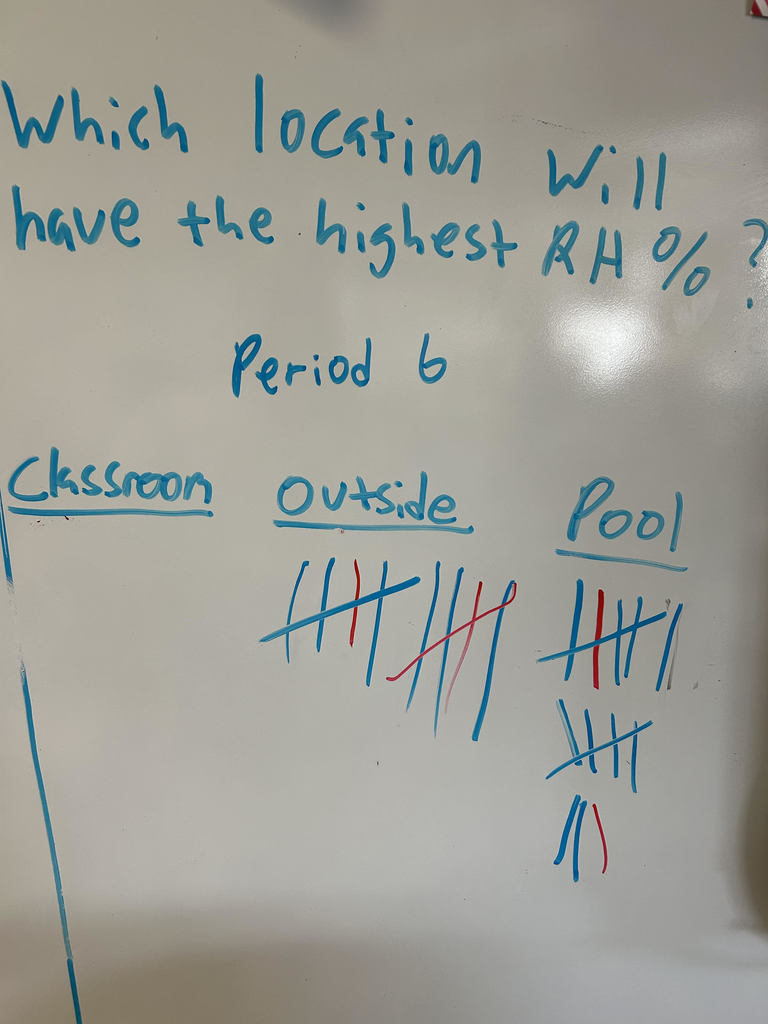 Which location will
have the highest RH%?
Period 6
Classroom Outside Pool